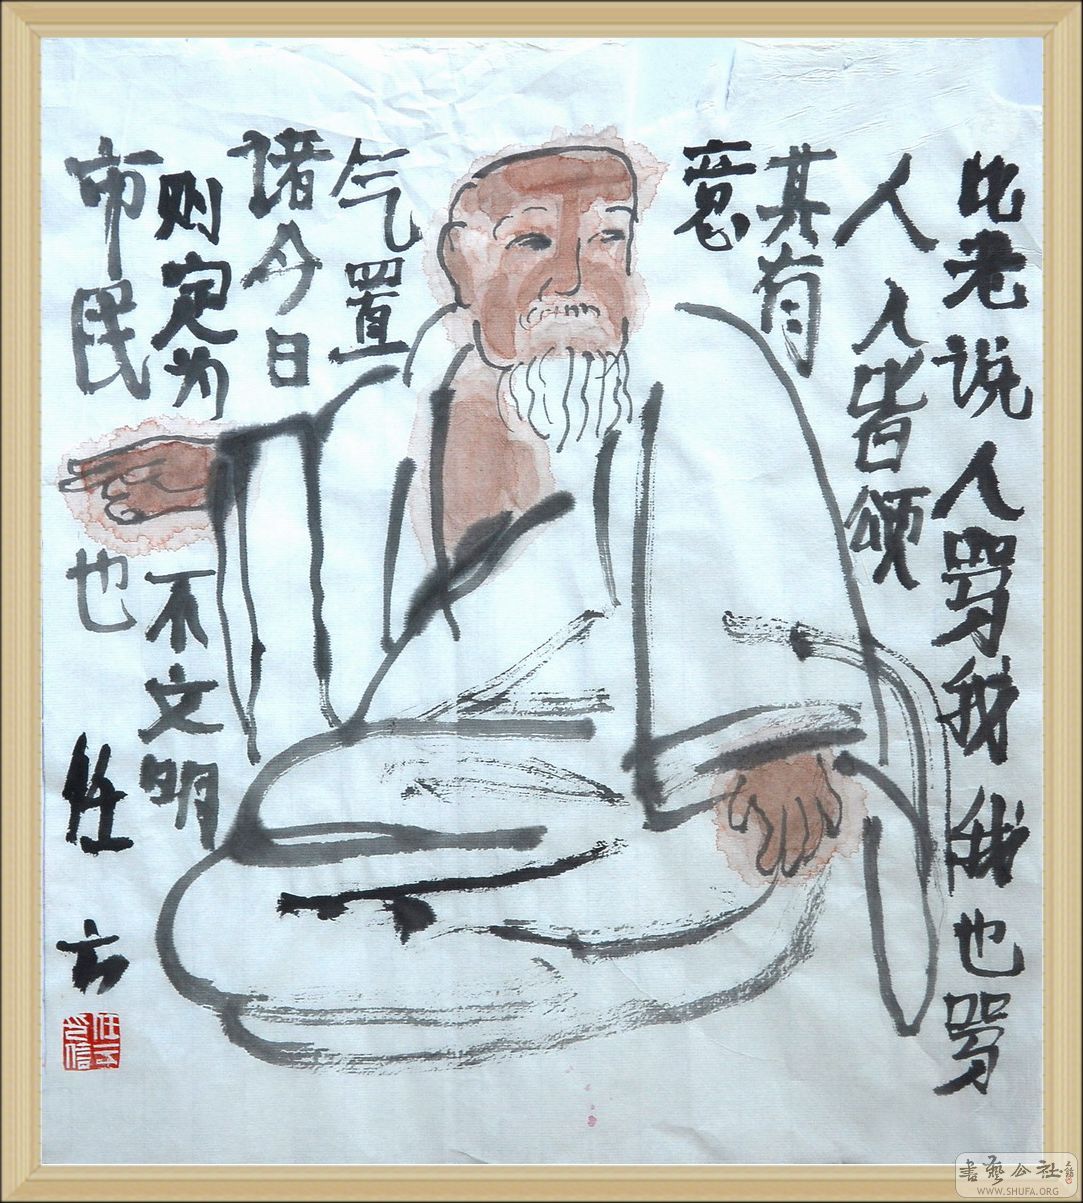 此老说人骂我我也骂
人人皆颂
其有
意
气置
诸今日
则定为不文明
市民也
任方
書藝公社
WWW.SHUFA.ORG